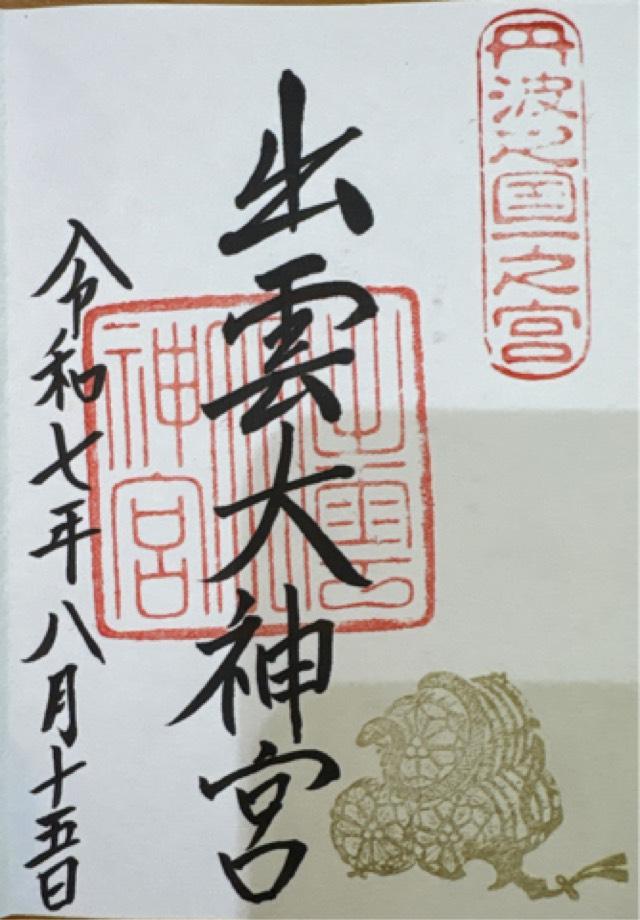 丹波之国一之宮
出雲大神宮
出雲大神宮
令和七年八月十五日